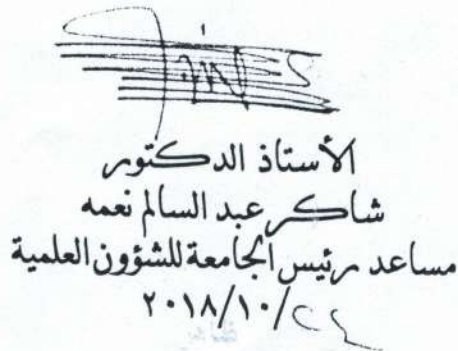 الأستاذ الدكتور
شاكر عبد السالم نعمه
مساعد رئيس الجامعة للشؤون العلمية
٢٠١٨/١٠/٢٤